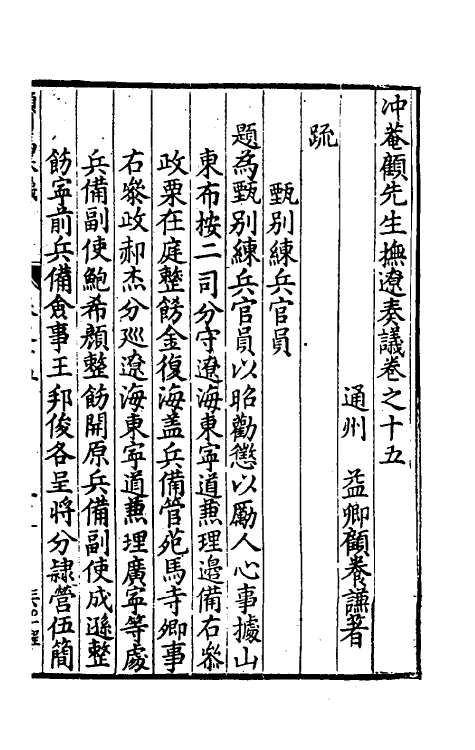 冲菴顧先生撫遼奏議卷之十五
通州 益卿顧養謙著
疏
甄別練兵官員
題為甄別練兵官員以昭勸懲以勵人心事據山
東布按二司分守遼海東寧道兼理邊備右叅
政栗在庭整飭金復海盖兵備管苑馬寺卿事
右叅政郝杰分廵遼海東寧道兼理廣寧等處
兵備副使鮑希顏整飭開原兵備副使成遜整
飭寧前兵備僉事王邦俊各呈將分隷營伍簡